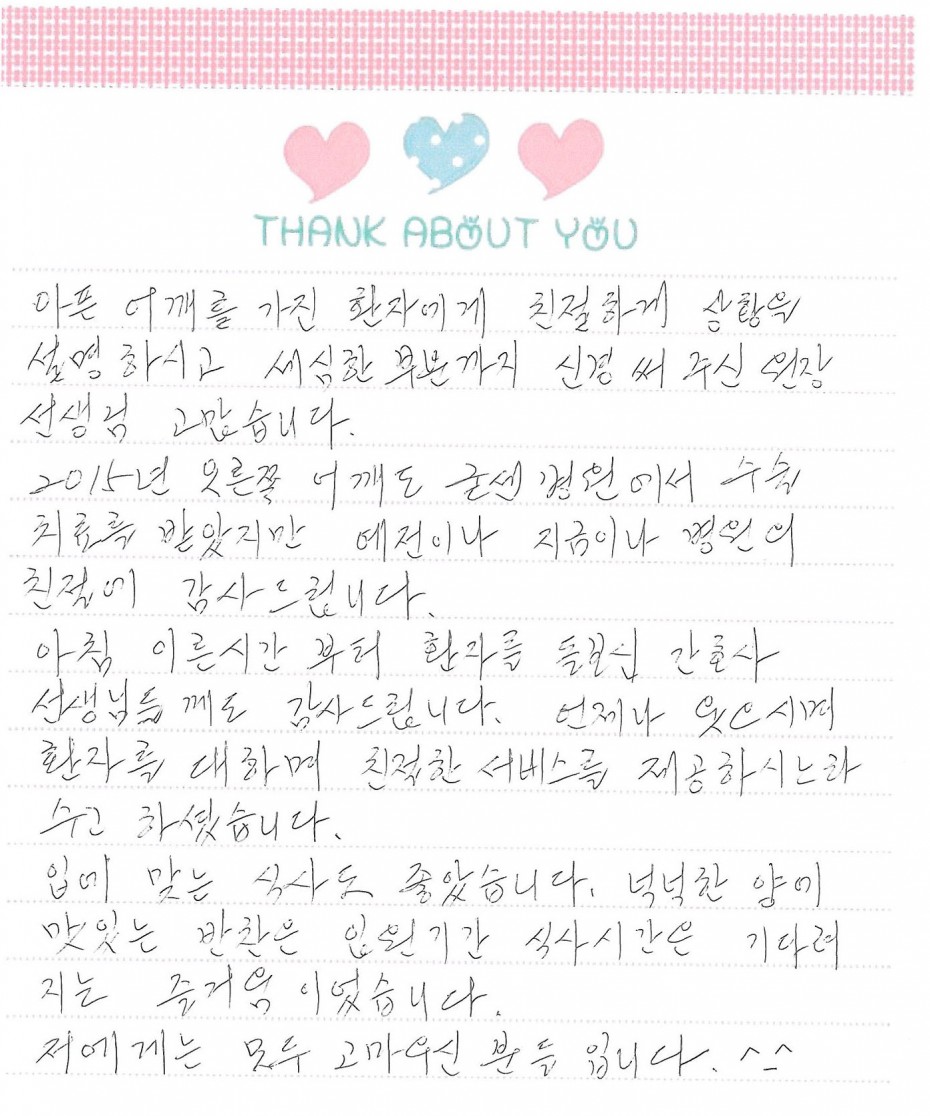 THANK ABOUT YOU
아픈 어깨를 가진 환자에게 친절하게 상황을
설명 하시고 세심한 부분까지 신경 써 주신 원장
선생님 고맙습니다.
2015년 오른쪽 어깨도 굳센병원에서 수술
치료를 받았지만 예전이나 지금이나 병원의
친절에 감사드립니다.
아침 이른시간 부터 환자를 돌보신 간호사
선생님들 께도 감사드립니다. 언제나 웃으시며
환자를 대하며 친절한 서비스를 제공하시느라
수고 하셨습니다.
입에 맞는 식사도 좋았습니다. 넉넉한 양에
맛있는 반찬은 입원기간 식사시간은 기다려
지는 즐거움 이었습니다.
저에게는 모두 고마우신 분들 입니다. ^^